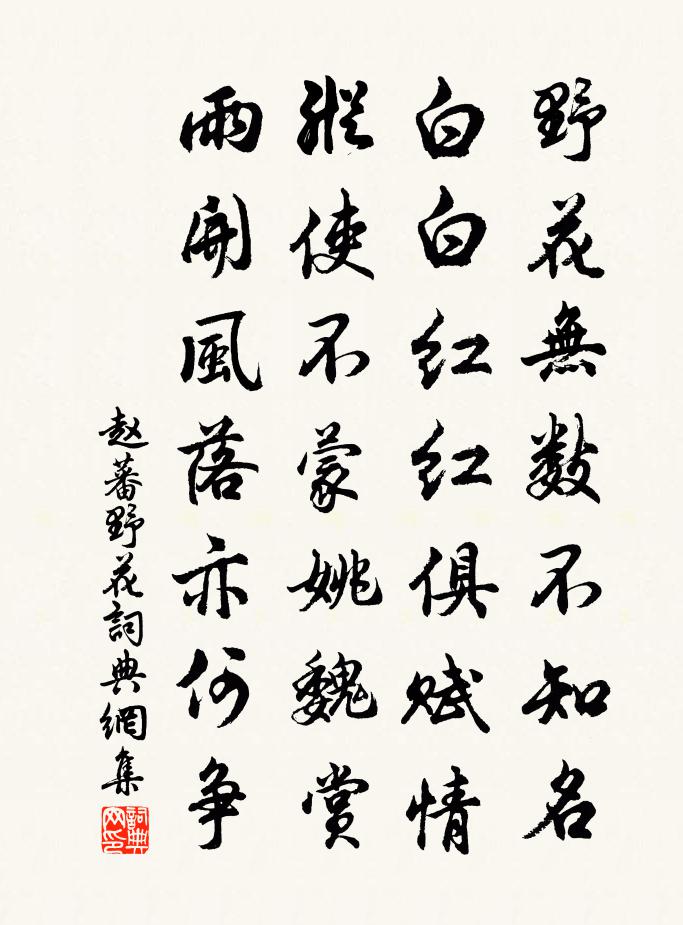 野花無數不知名
白白紅紅俱賦情
縱使不蒙姚魏賞
雨開風落亦何爭
赵蕃野花詞典網集
詞典网印